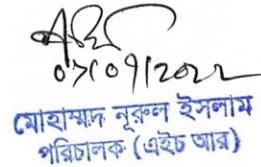 ০১/০৭/২০২২
মোহাম্মদ নূরুল ইসলাম
পরিচালক (এইচ আর)